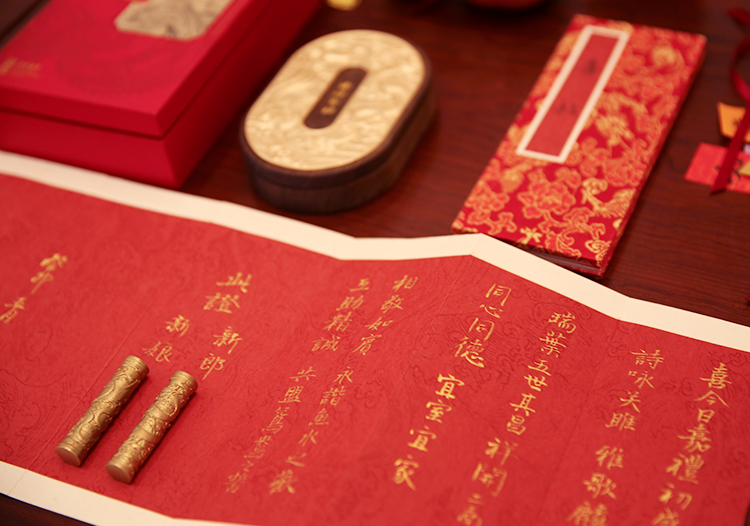 喜今日嘉禮初
詩咏关雎 雅歌麟
瑞葉五世其昌 祥開二
同心同德 宜室宜家
相敬如賓 永諧魚水之歡
互助精誠 共盟鴛鴦之誓
此證 新郎
新娘
癸卯